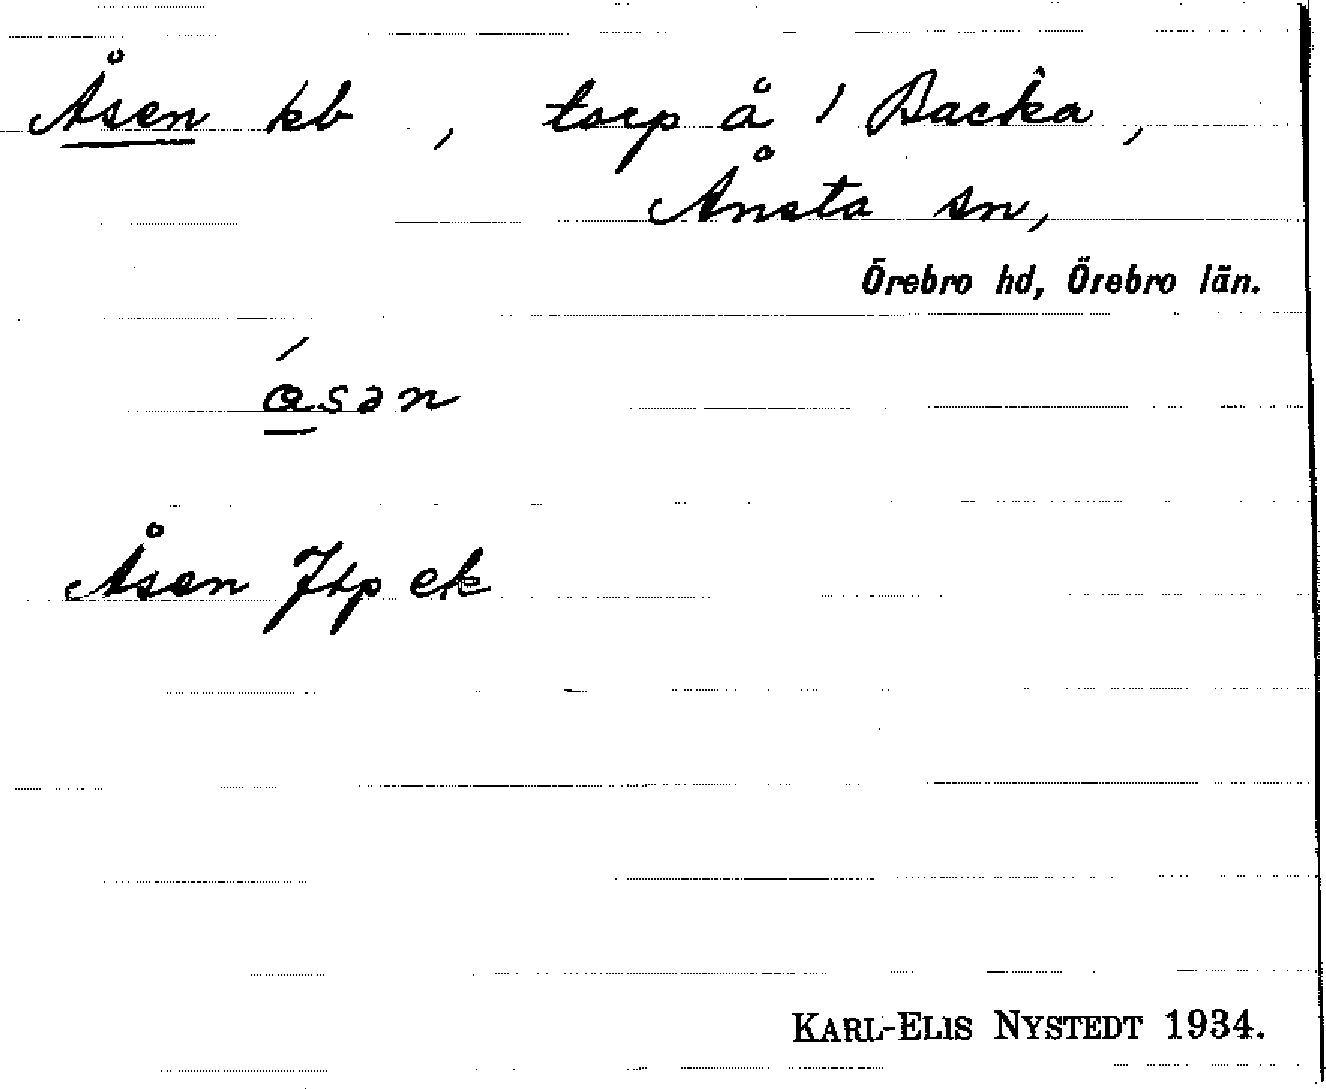 Åsen kb, torp å 1 Backa,
Ånsta sn,
Örebro hd, Örebro län.
åsən
Åsen Jtp ek
KARL-ELIS NYSTEDT 1934.